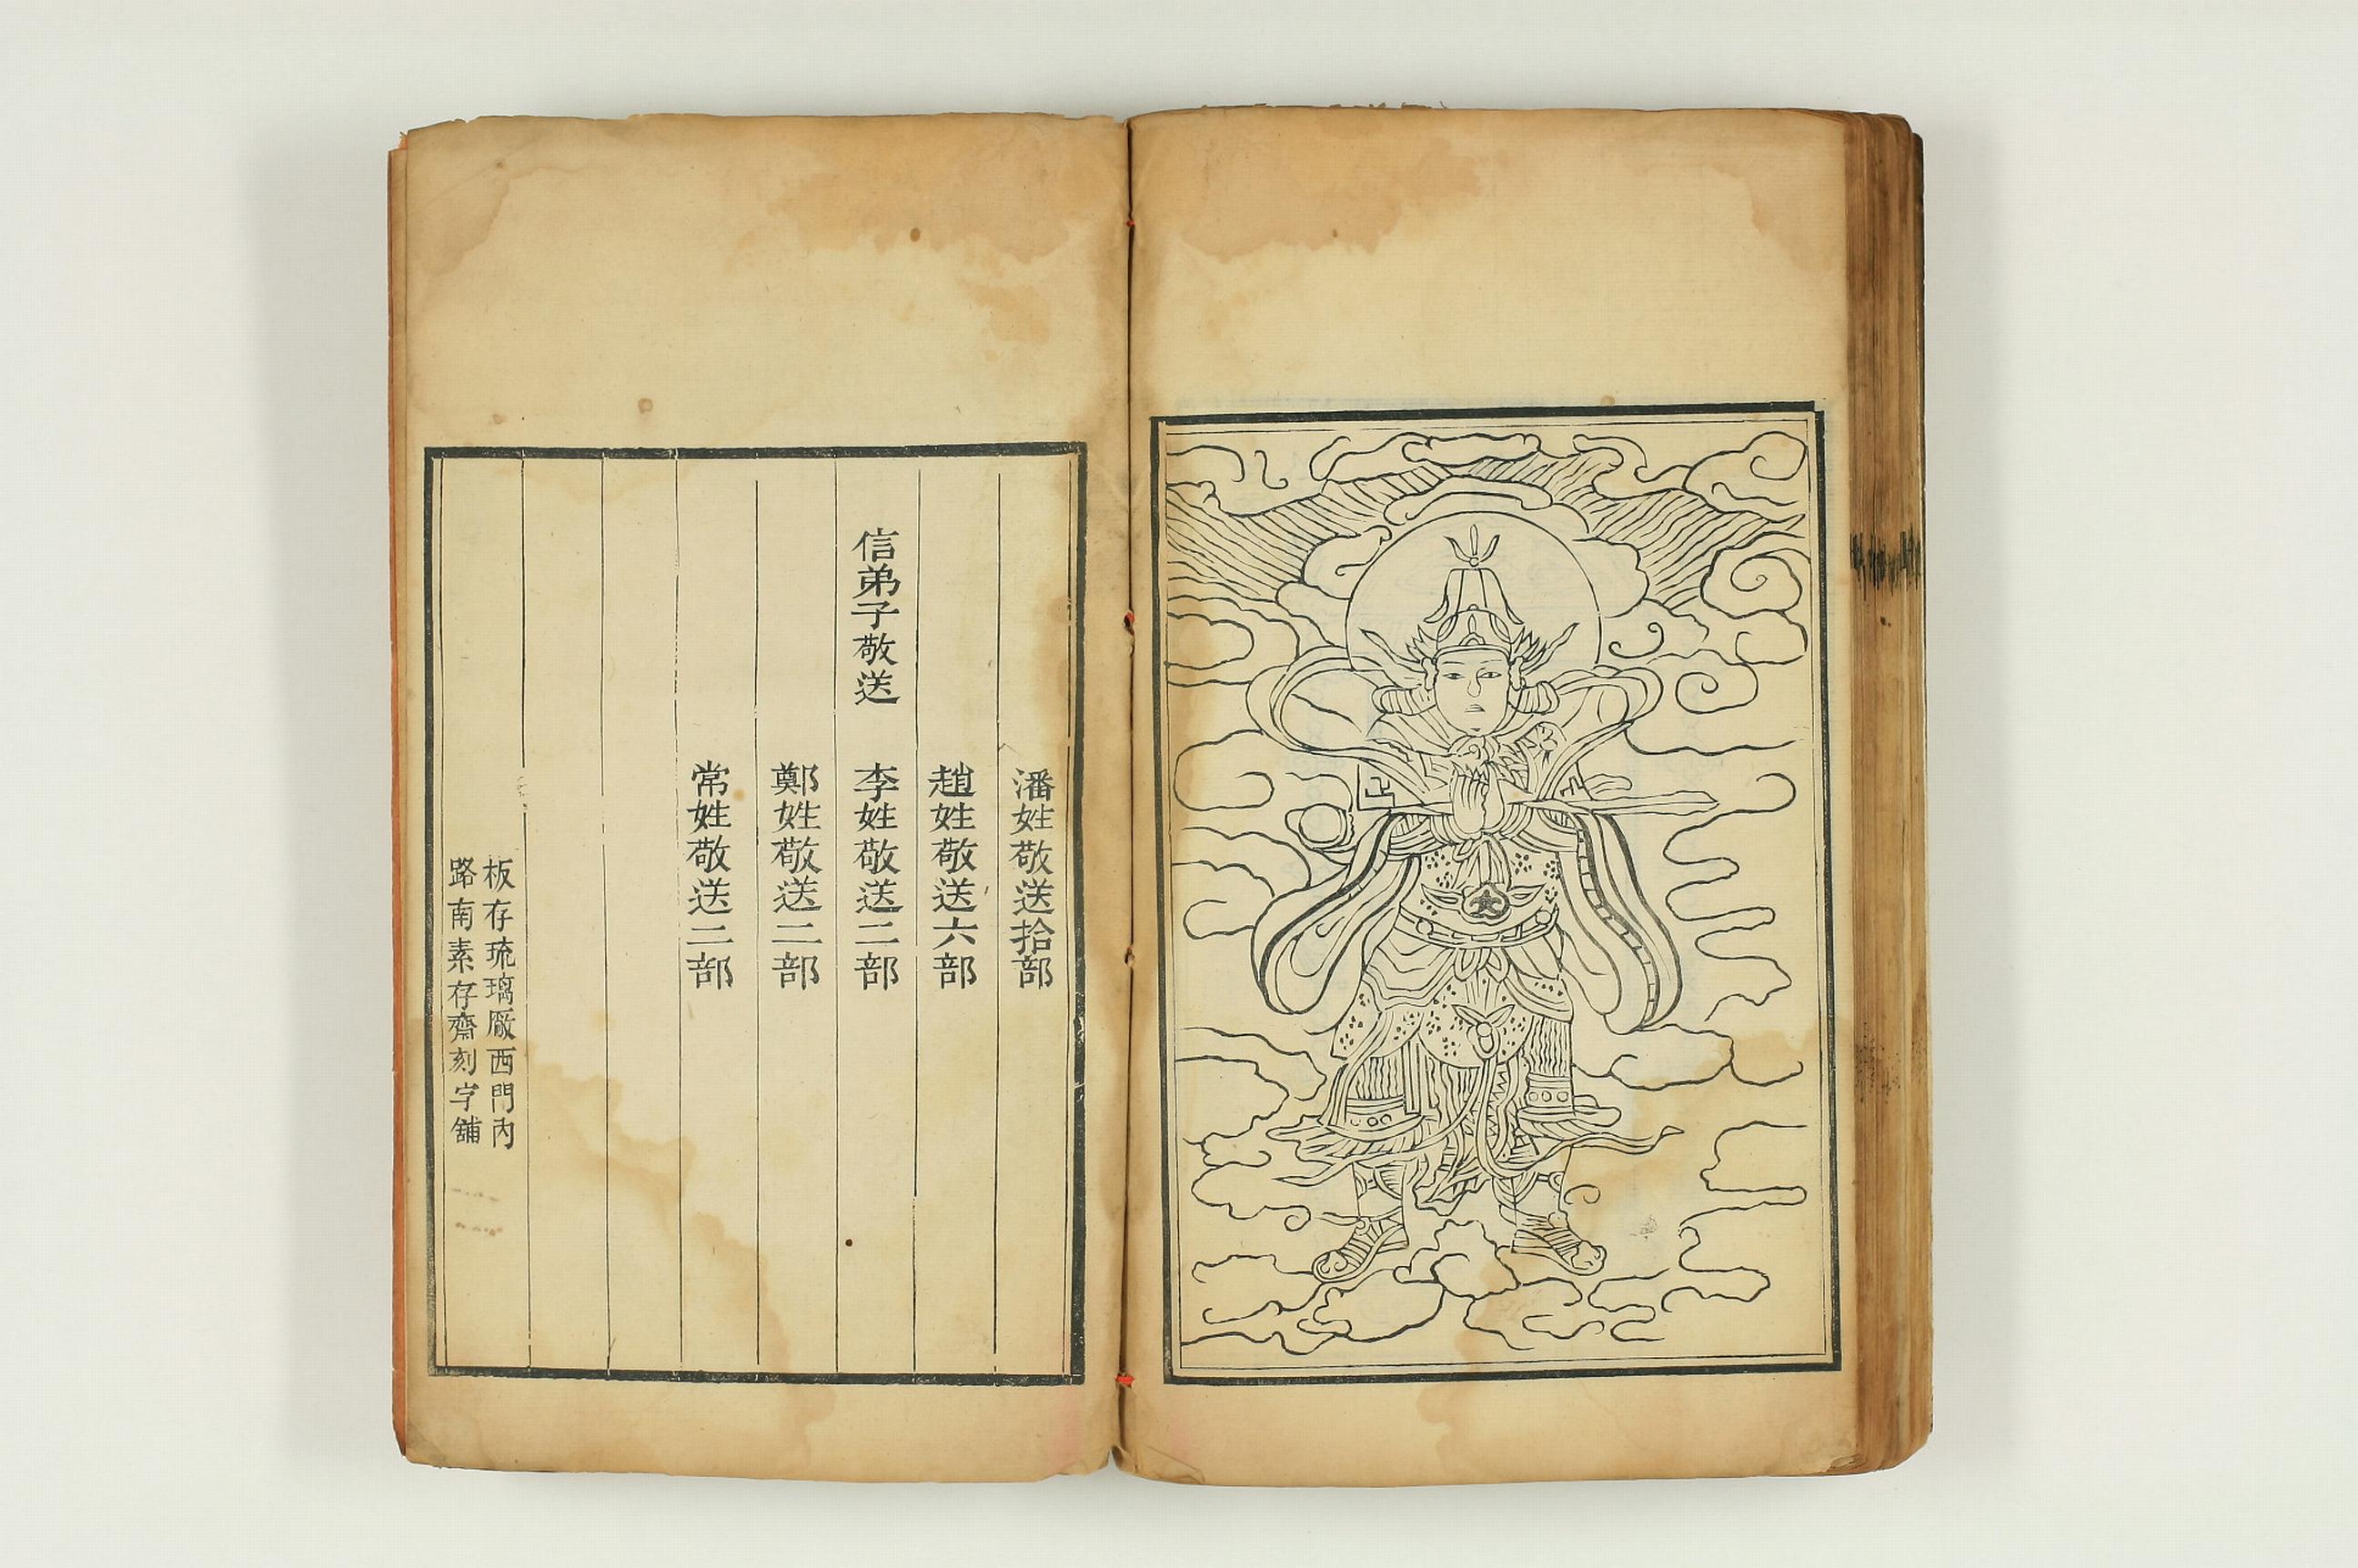 潘姓敬送拾部
趙姓敬送六部
信弟子敬送 李姓敬送二部
鄭姓敬送二部
常姓敬送二部
板存琉璃厰西門內
路南素存齋刻字舖